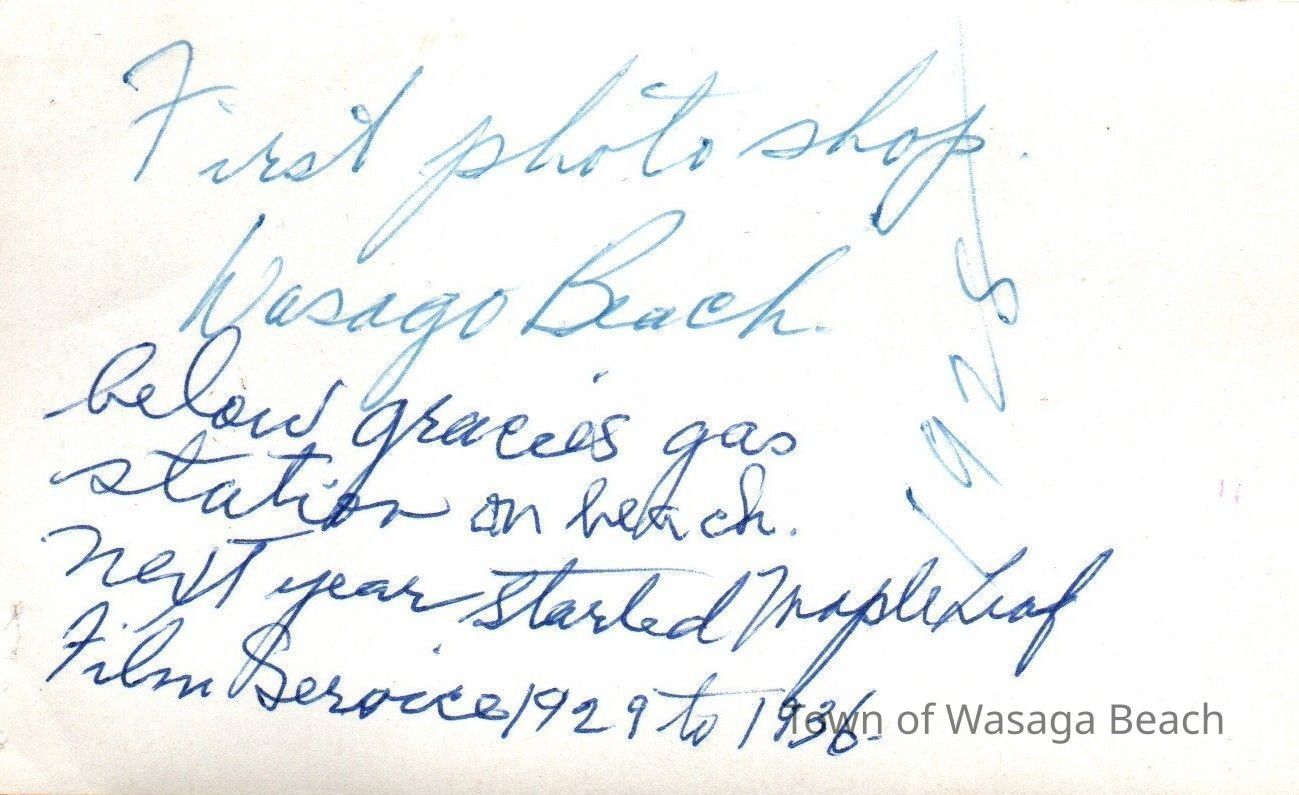 First photo shop.
Wasago Beach.
below gracies gas
station on beach.
Next year started Maple Leaf
Film Service 1929 to 1936
Town of Wasaga Beach